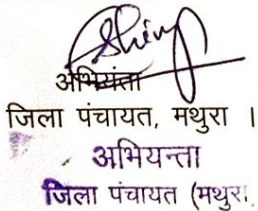 अभियंता
जिला पंचायत, मथुरा ।
अभियन्ता
जिला पंचायत (मथुरा